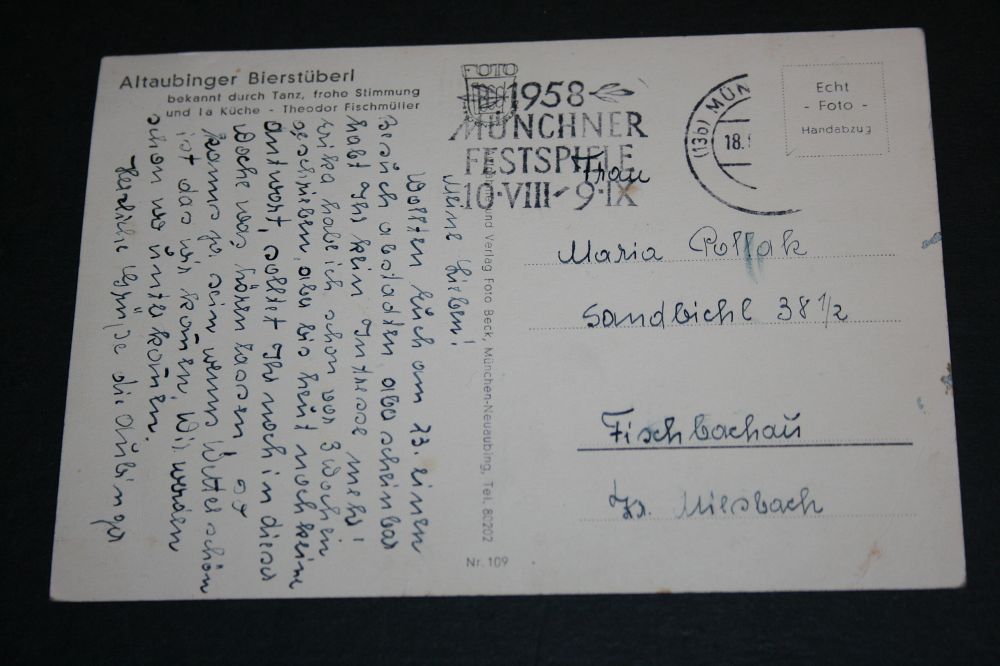 Altaubinger Bierstüberl
bekannt durch Tanz, frohe Stimmung
und la Küche - Theodor Fischmüller
FOTO
1958
MÜNCHNER
FESTSPIELE
10·VIII - 9·IX
(13b) MÜN
18.
Echt
- Foto -
Handabzug
Meine Lieben!
Wollten Euch am 23. einen
Besuch abstatten, aber scheinbar
habt Ihr kein Intresse mehr!
Erika habe ich schon vor 3 Wochen
geschrieben, aber bis heut noch keine
Antwort, solltet Ihr noch in dieser
Woche was hören lassen, so
kann's ja sein wenns Wetter schön
ist das wir kommen. Wir werden
schon wo unterkommen.
Herzliche Grüße die Aubinger
und Verlag Foto Beck, München-Neuaubing, Tel. 80202
Nr. 109
Frau
Maria Pollak
Sandbichl 38 1/2
Fischbachau
Kr. Miesbach